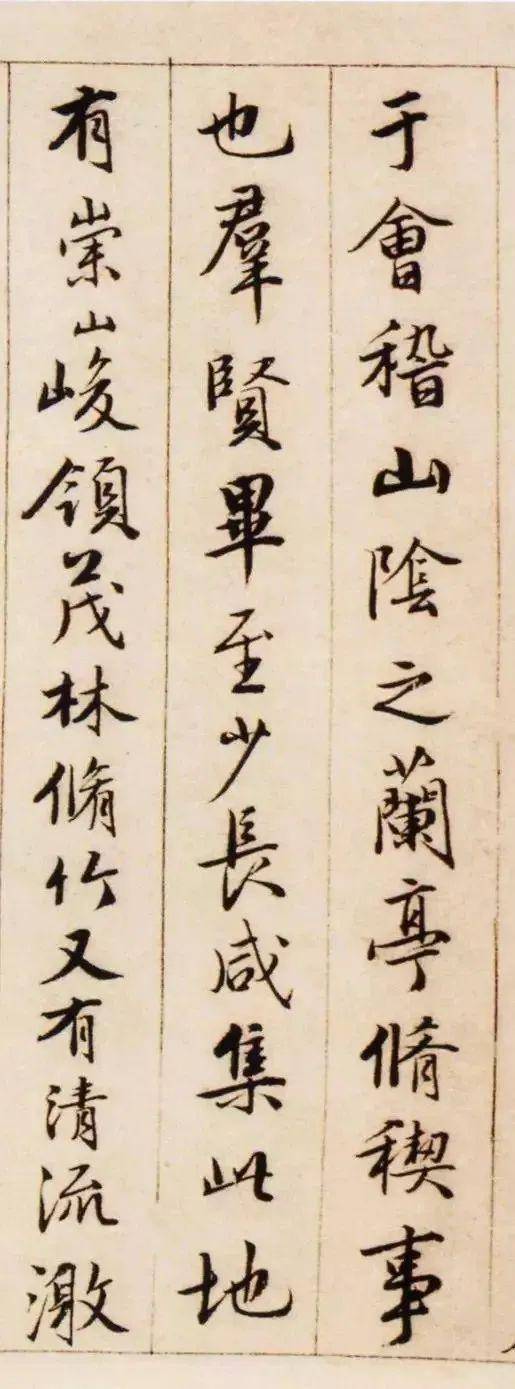 于會稽山陰之蘭亭脩稧事
也羣賢畢至少長咸集此地
有崇山峻領茂林脩竹又有清流激